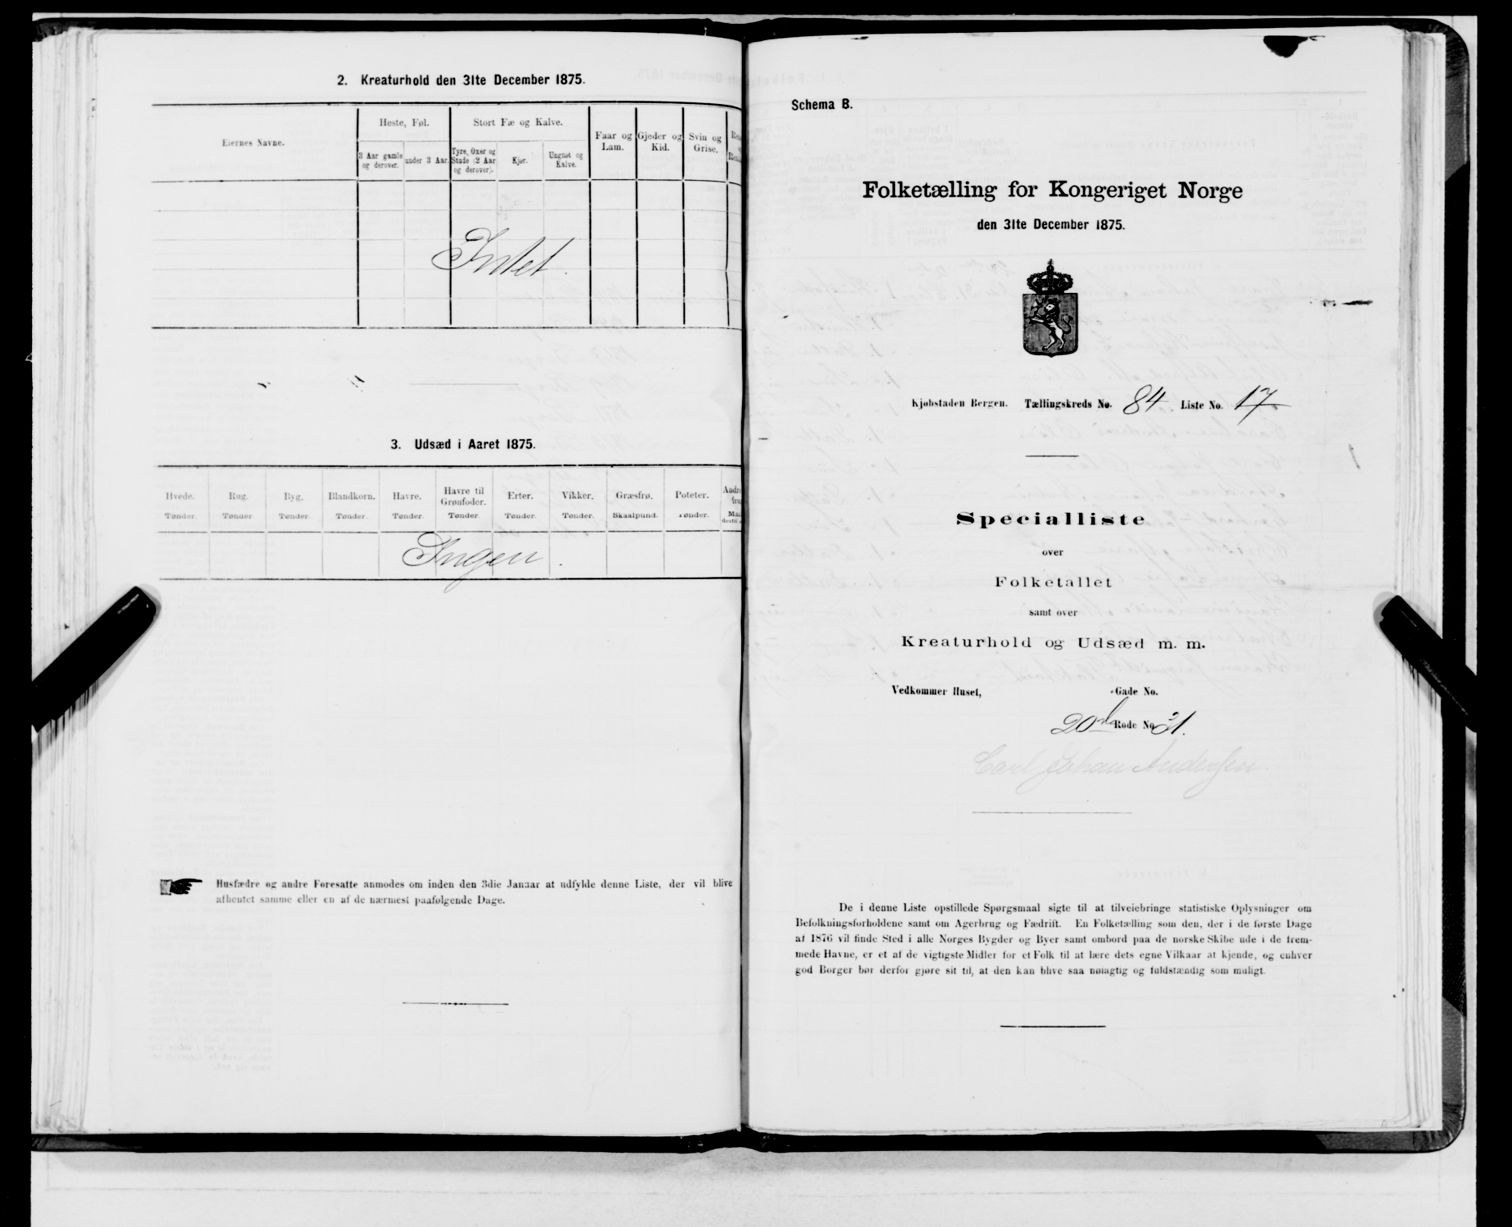 2. Kreaturhold den 31te December 1875.
Eiernes Navne.
Heste, Føl.
Stort Fæ og Kalve.
Faar og Lam.
Gjeder og Kid.
Svin og Grise.
3 Aar gamle og derover.
under 3 Aar.
Tyre, Oxer og Stude (2 Aar og derover).
Kjør.
Ungnøt og Kalve.
Intet.
3. Udsæd i Aaret 1875.
Hvede. Rug. Byg. Blandkorn. Havre. Havre til Grønfoder. Erter. Vikker. Græsfrø. Poteter.
Tønder. Tønder Tønder. Tønder. Tønder. Tønder Tønder. Tønder. Skaalpund. Tønder.
Ingen.
Husfædre og andre Foresatte anmodes om inden den 3die Januar at udfylde denne Liste, der vil blive
afhentet samme eller en af de nærmest paafølgende Dage.
Schema B.
Folketælling for Kongeriget Norge
den 31te December 1875.
Kjøbstaden Bergen. Tællingskreds No. 84 Liste No. 17
Specialliste
over
Folketallet
samt over
Kreaturhold og Udsæd m. m.
Vedkommer Huset, Gade No.
20de Rode No. 21.
Carl Johan Andersen
De i denne Liste opstillede Spørgsmaal sigte til at tilveiebringe statistiske Oplysninger om
Befolkningsforholdene samt om Agerbrug og Fædrift. En Folketælling som den, der i de første Dage
af 1876 vil finde Sted i alle Norges Bygder og Byer samt ombord paa de norske Skibe ude i de frem-
mede Havne, er et af de vigtigste Midler for et Folk til at lære dets egne Vilkaar at kjende, og enhver
god Borger bør derfor gjøre sit til, at den kan blive saa nøiagtig og fuldstændig som muligt.